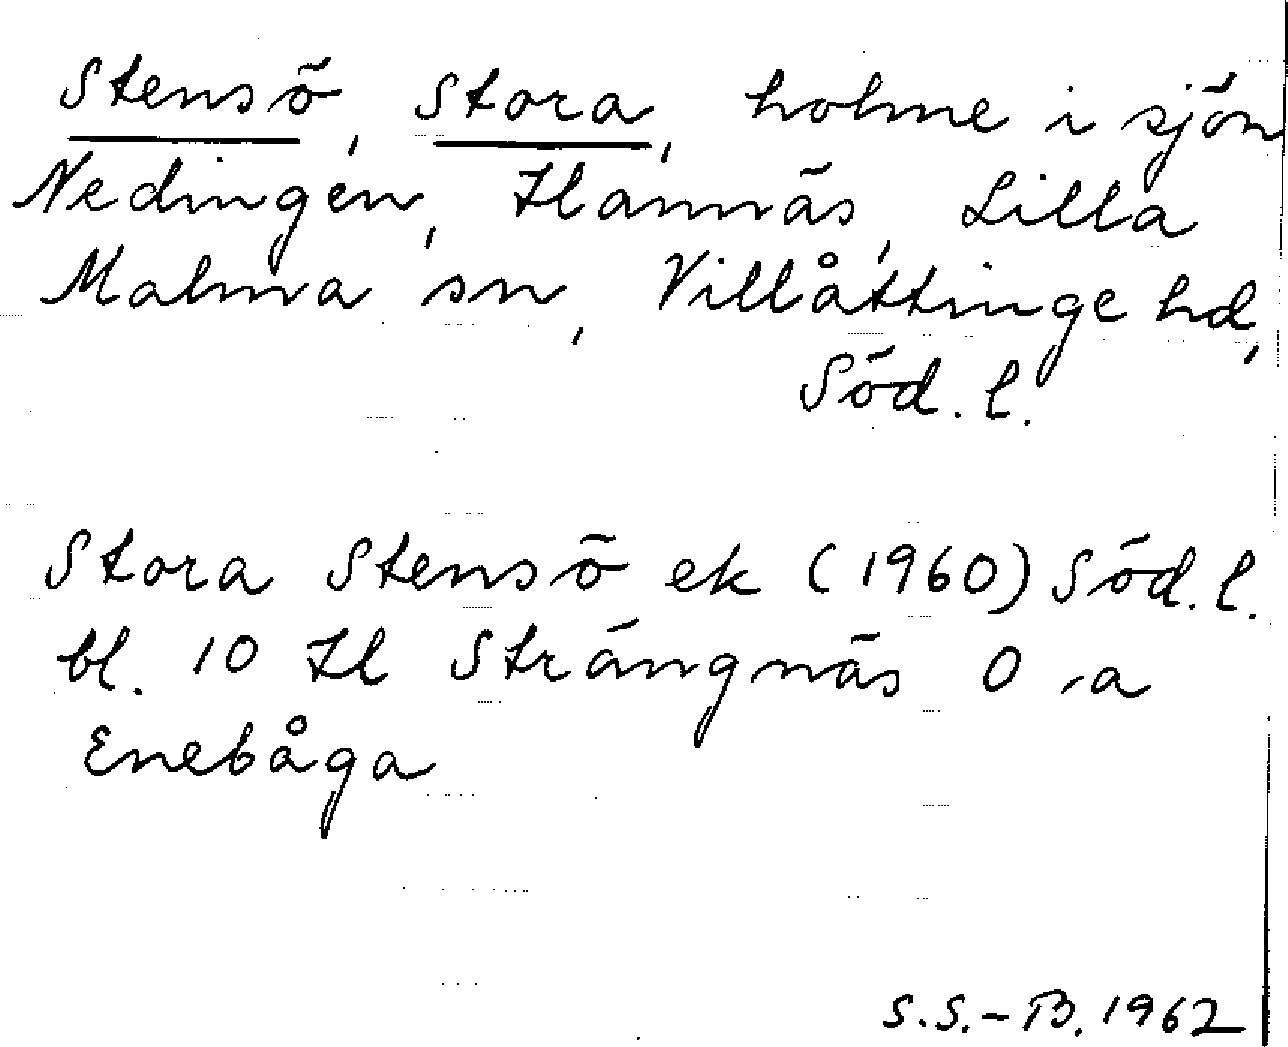 Stensö, Stora, holme i sjön
Nedingen, Hannäs, Lilla
Malma sn, Villåttinge hd,
Söd. l.
Stora Stensö ek (1960) Söd. l.
bl. 10 H Strängnäs O
Enebåga
S.S.-B. 1962